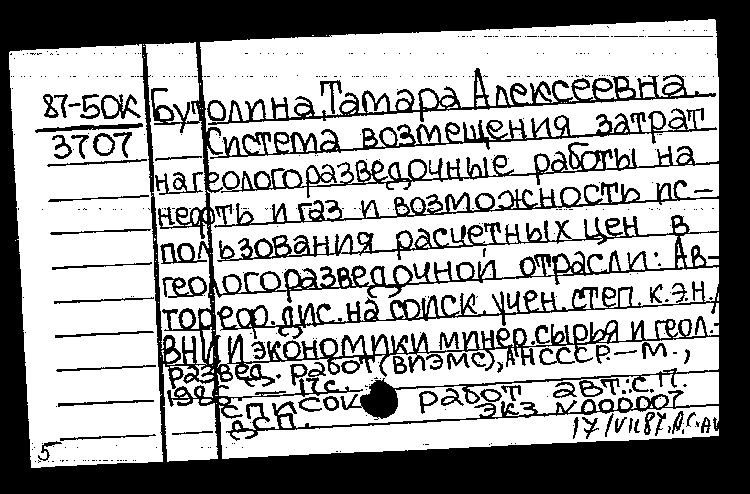 87-50К Бутолина, Тамара Алексеевна.
3707 Система возмещения затрат
на геологоразведочные работы на
нефть и газ и возможность ис-
пользования расчетных цен в
геологоразведочной отрасли: Ав-
тореф. дис. на соиск. учен. степ. к.э.н./
ВНИИ экономики минер. сырья и геол.-
развед. работ (ВИЭМС), АН СССР. — М.,
198 — 17 с.
Список работ авт.: с. 17.
ДСП. ЭКЗ N000007
5 17/VII87.